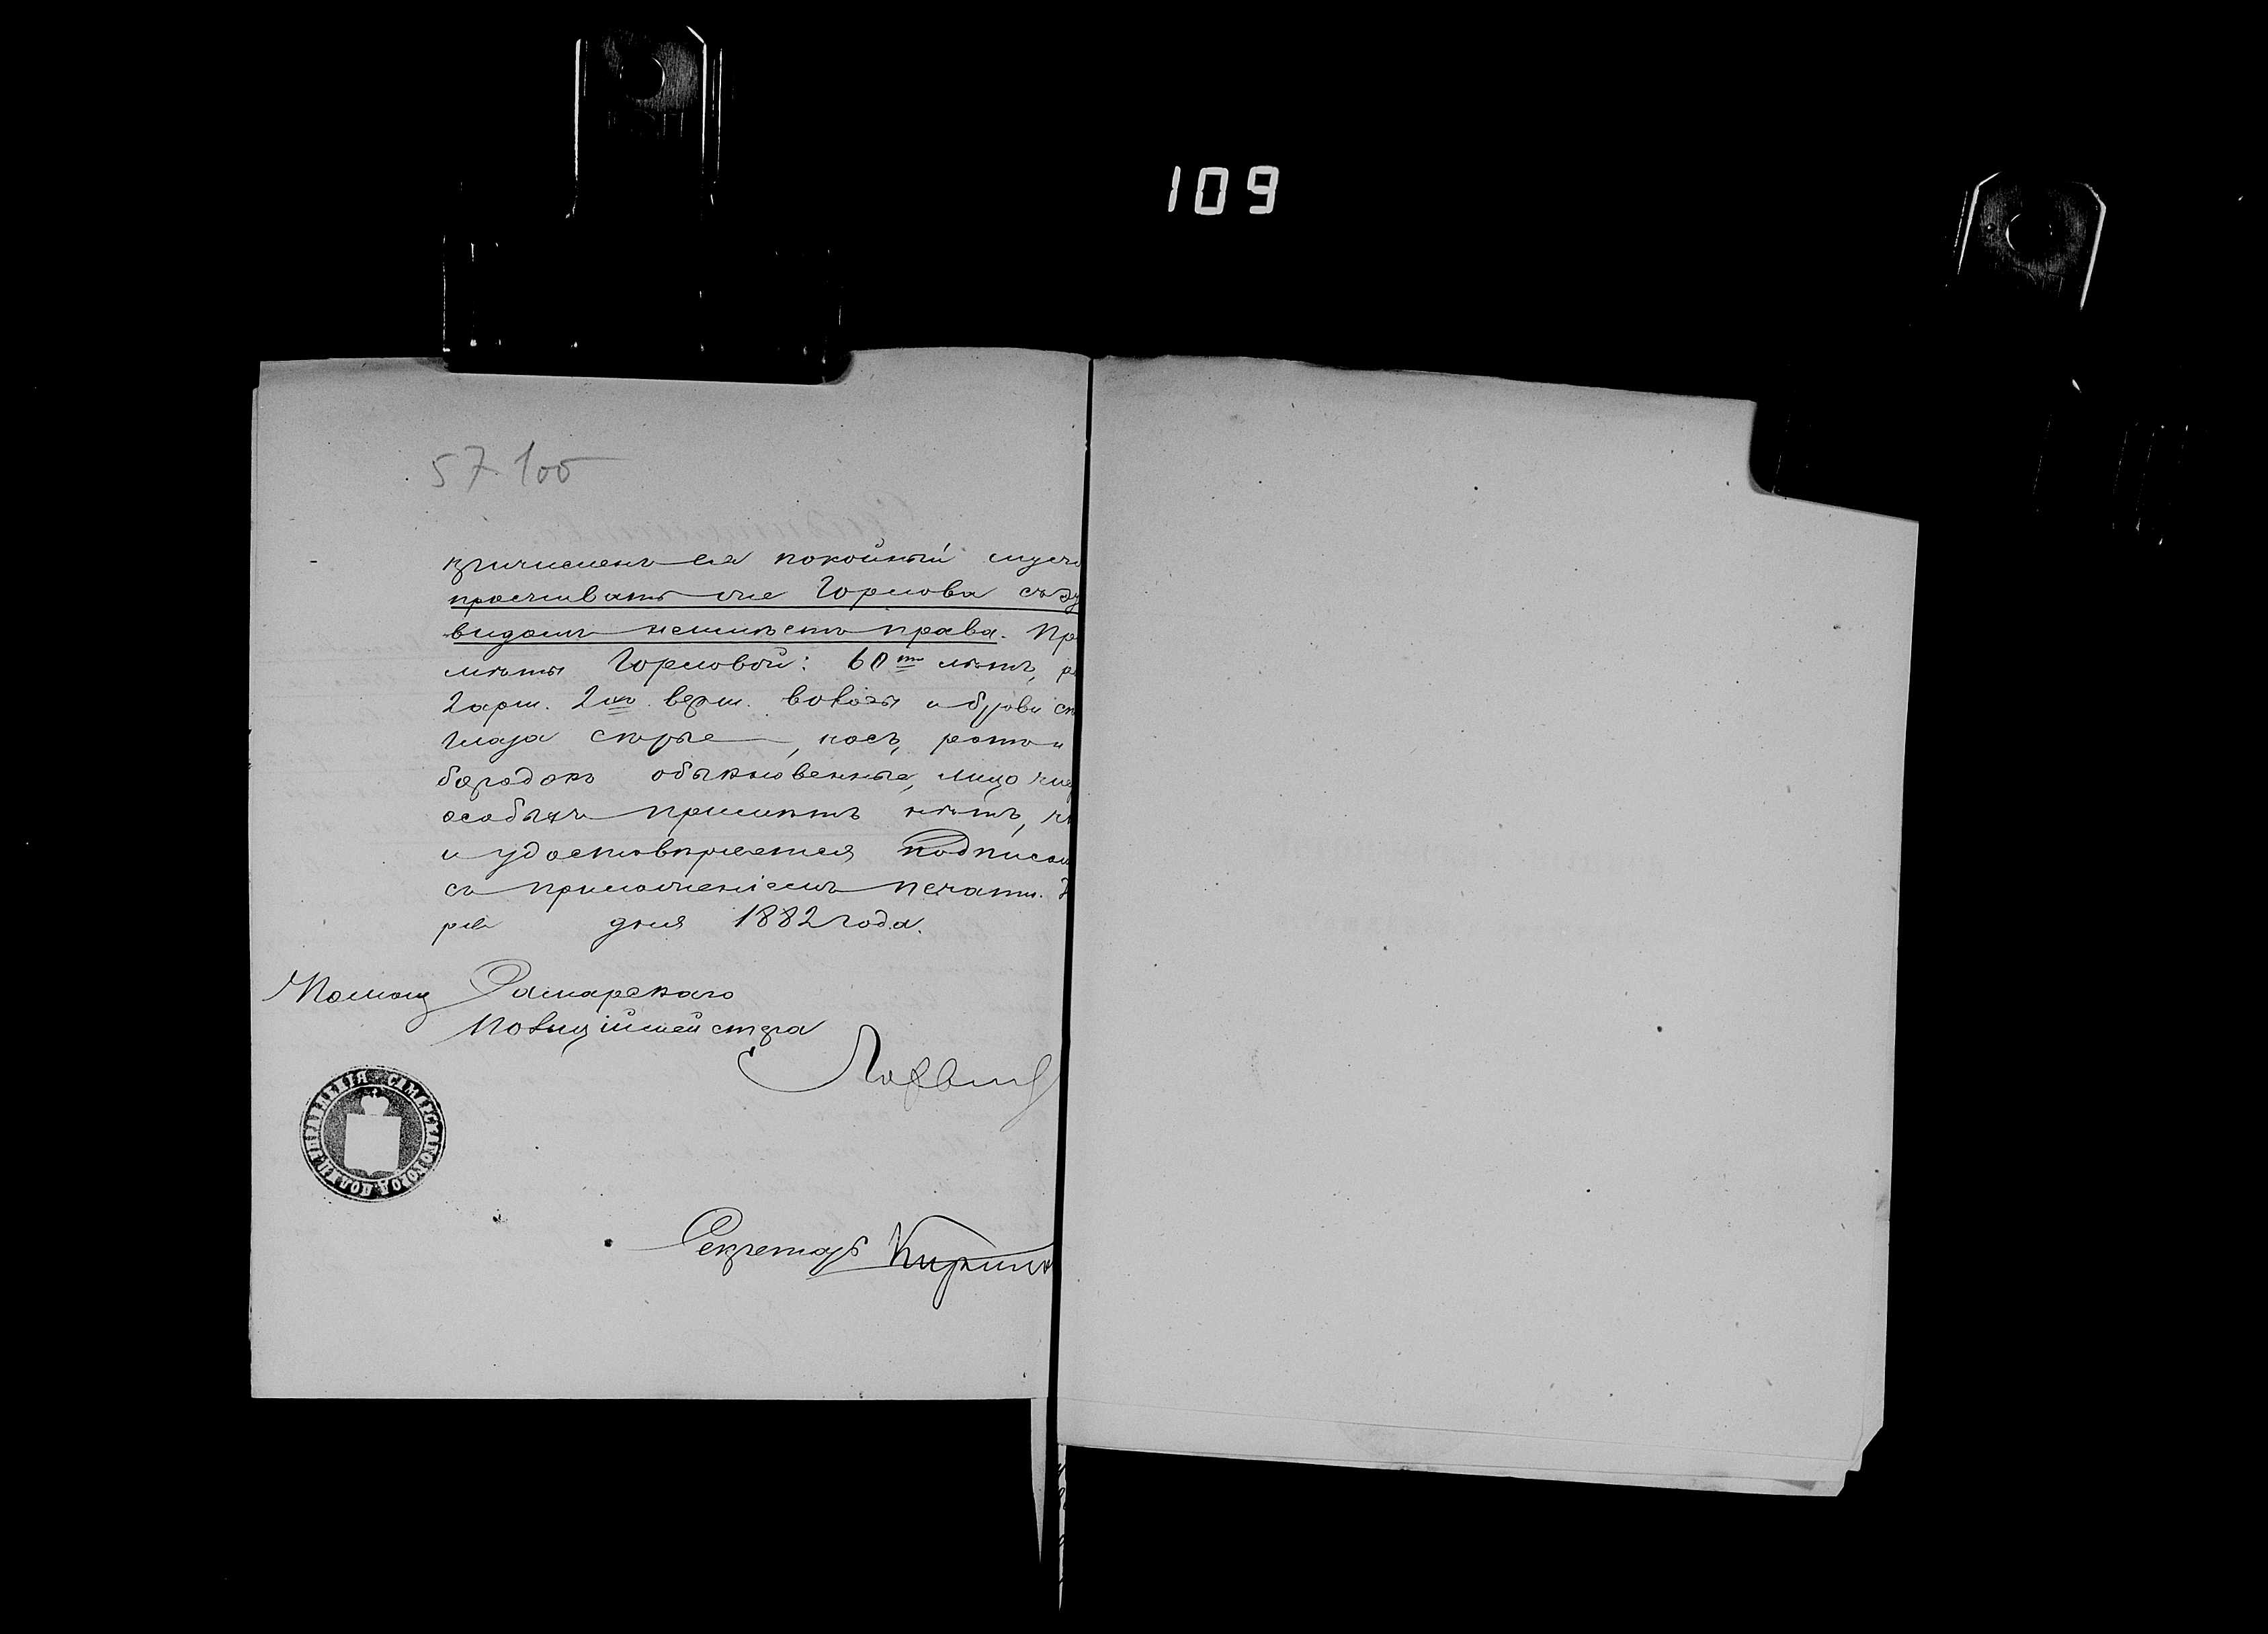 109
57. 100
причисленъ ея покойный муж
проживать же Горлова съ э
видомъ неимѣетъ права. При
мѣты Горловой: 60ти лѣтъ, р
2 арш. 2хъ верш. волосы и брови
глаза сѣрые, носъ, ротъ и
бородокъ обыкновенные, лицо чис
особыхъ примѣтъ нѣтъ,
и удостовѣряется подписом
съ приложеніемъ печати.
ря дня 1882 года.
Помощ Самарскаго
Полиціймейстера
Секретарь
САМАРСК. ГОРОД. ПОЛИЦ. УПРАВЛЕНІЯ